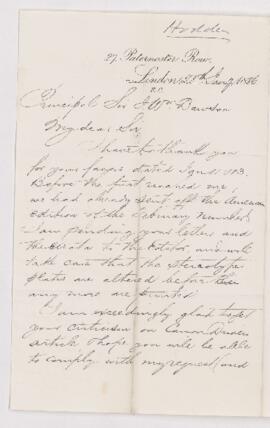 Hodder
27, Paternoster Row,
London, 28th Jany 1886
Principal Sir J Wm Dawson
My dear Sir,
I have to thank you
for your favors dated Jan 11 & 13.
Before the first reached me,
we had already sent off the American
edition of the February number.
I am sending your letters and
the errata to the Editor, and will
take care that the stereotype
plates are altered before
any more are printed.
I am exceedingly glad to get
your criticism on Canon Driver's
article. I hope you will be able
to comply with my request (and